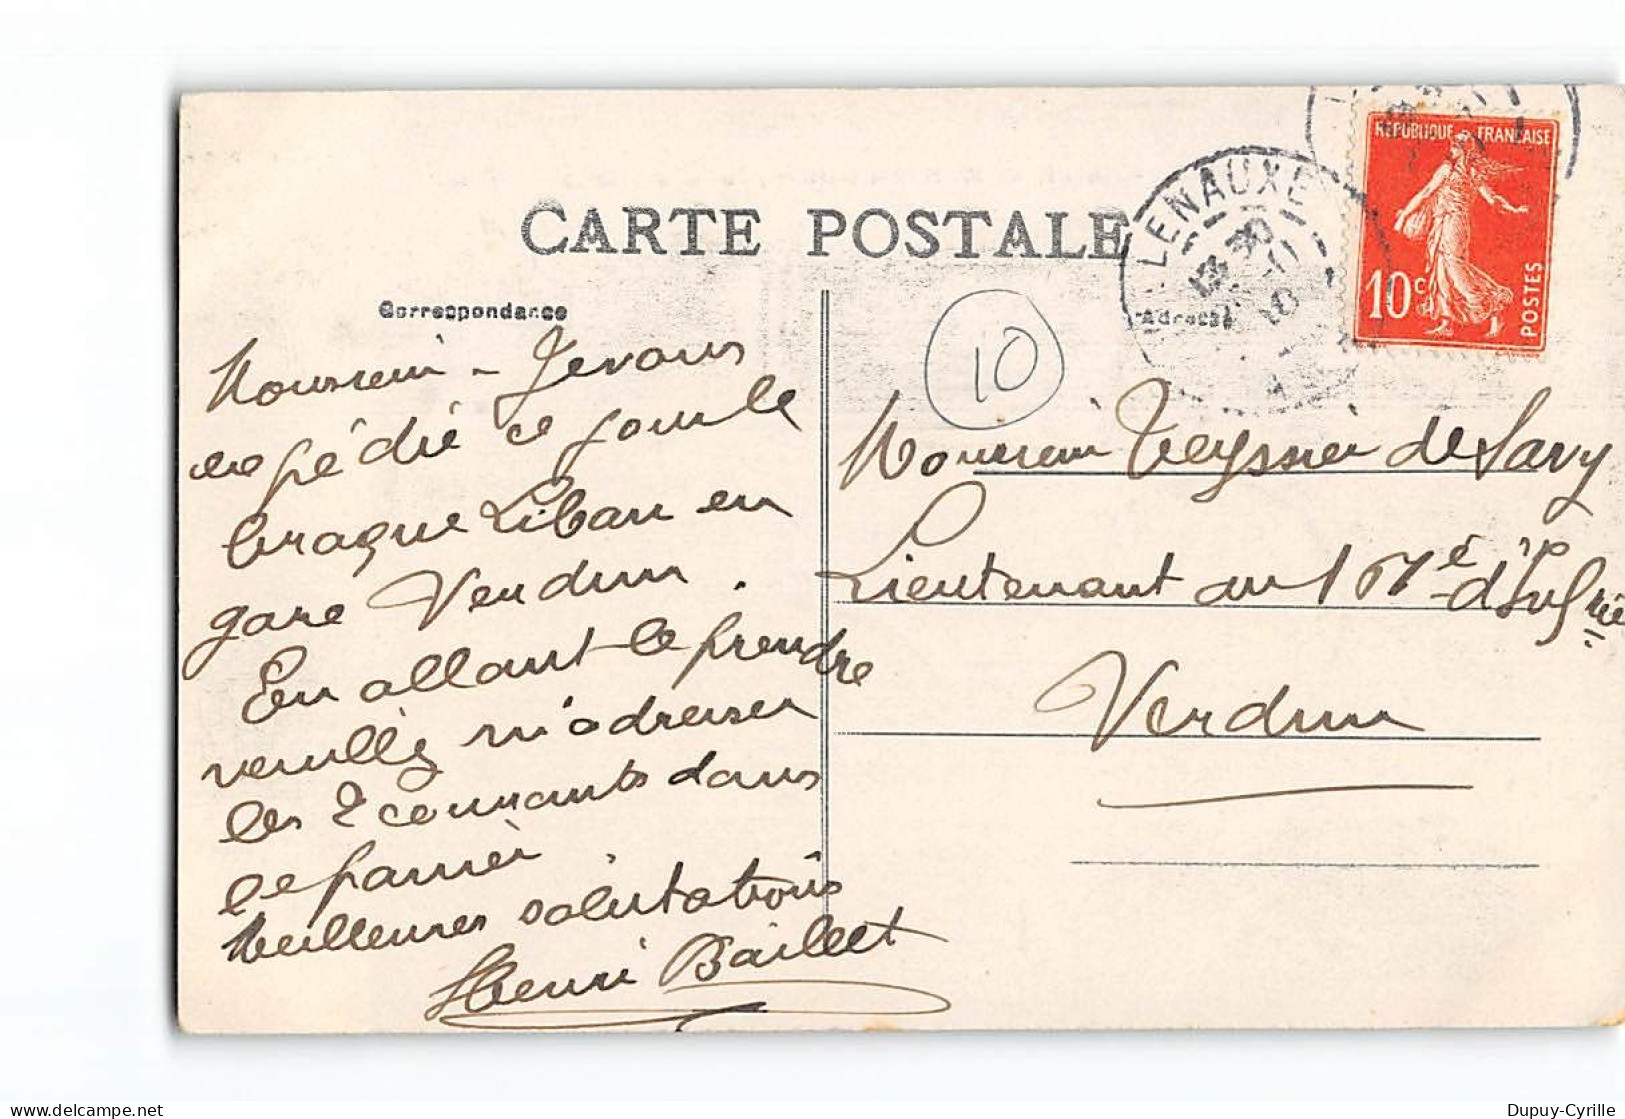 CARTE POSTALE
Correspondance
Monsieur - Je vous
expédié ce jour le
braque Liban en
gare Verdun.
En allant le prendre
veuillez m'adresser
les 2 courants dans
le panier
Meilleures salutations
Henri Baillet
LENAUXE
RÉPUBLIQUE FRANÇAISE
10c
POSTES
Adresse
10
Monsieur Teyssier de Savy
Lieutenant au
d'Infrie
Verdun
Dupuy-Cyrille